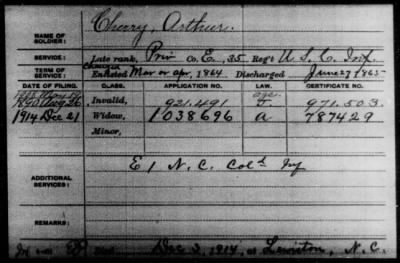 NAME OF SOLDIER: Cherry, Arthur.
SERVICE: Late rank, Priv Co. E, 35 Reg't U.S.C. Inf.
TERM OF SERVICE: Enlisted Mar or Apr, 1864 Discharged June 27, 1865
DATE OF FILING. CLASS. APPLICATION NO. LAW. CERTIFICATE NO.
1890 Aug 26 Invalid, 921.491 J 971.503.
1914 Dec 21 Widow, 1038696 a 787429
Minor,
ADDITIONAL SERVICES: E 1 N.C. Cold Inf
REMARKS:
Died Dec 3, 1914, at Lewiston, N.C.